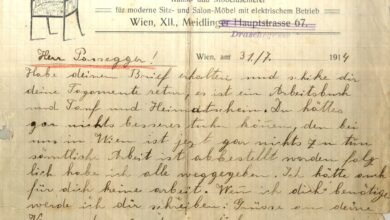 für moderne Sitz- und Salon-Möbel mit elektrischem Betrieb
Wien, XII., Meidlinger Hauptstrasse 67.
Herr Passegger!
Wien, am 31/7. 1914
Habe deinen Brief erhalten und schike dir
deine Togomente retur, es ist ein Arbeitsbuch
und Tauf und Heimatschein. Du hättes
gar nichts besseres thun könen, den bei
uns in Wien ist jezt gar nichts zu tun
sämtliche Arbeit ist abbestellt worden folg
lich habe ich alle weggegeben. Ich hätte auch
für dich keine arbeit. Wen ich dich benötige
werde ich dir schreiben. Grüsse an deine